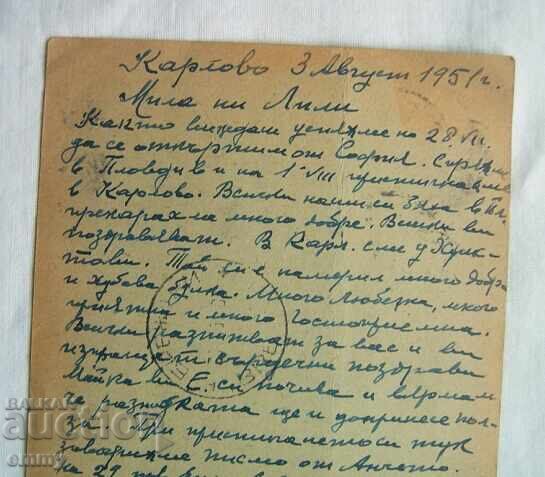 Карлово 3 Август 1951 г.
Мила ни Лили
Както виждаш успяхме на 28.VII.
да се отвържим от София. Спряхме
в Пловдив и на 1 VIII пристигнахме
в Карлово. Всички наши си бяха в Пл.
прекарахме много добре. Всички ви
поздравяват. В Карл. сме у
Той си е намерил много добра
и хубава булка. Много любезна, много
приятна и много гостоприемна.
Всички разпитват за вас и ви
изпращат сърдечни поздрави
Майка ви Е. си почива и вярвам
че разходката ще и донесе пол-
за. При пристигането си тук
заварихме писмо от Анчето.
на 29
BALKAN
auction
emmy